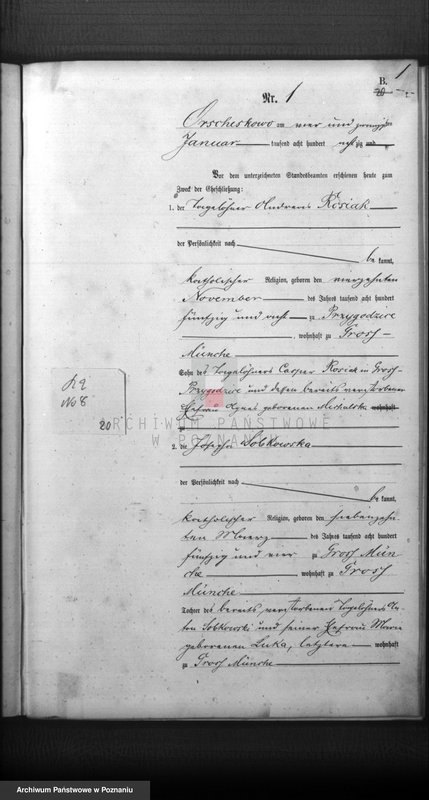 1
B.
Nr. 1
Orscheskowo am vier und zwanzigsten
Januar tausend acht hundert achtzig und
Vor dem unterzeichneten Standesbeamten erschienen heute zum
Zweck der Eheschließung:
1. der Tagelöhner Andreas Rosiak
der Persönlichkeit nach
be kannt,
katholischer Religion, geboren den vierzehnten
November des Jahres tausend acht hundert
fünfzig und acht zu Przygodzice
, wohnhaft zu Grosz-
Münche
Sohn des Tagelöhners Casper Rosiak in Grosz-
Przygodzice und dessen bereits verstorbenen
Ehefrau Agnes geborenen Michalska wohnhaft
zu
K 2
No 8
20
ARCHIWUM PAŃSTWOWE
W POZNANIU
2. die Josepha Sobkowska
der Persönlichkeit nach
be kannt,
katholischer Religion, geboren den siebenzehn
ten Maerz des Jahres tausend acht hundert
fünfzig und vier zu Grosz Mün
che wohnhaft zu Grosz
Münche
Tochter des bereits verstorbenen Tagelöhners An
ton Sobkowski und seiner Ehefrau Marie
geborenen Luka, letztere wohnhaft
zu Grosz Münche
Archiwum Państwowe w Poznaniu